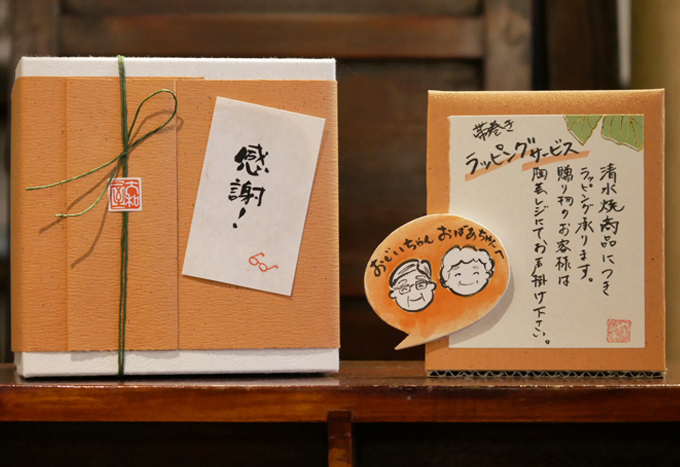 感謝!
帯巻き
ラッピングサービス
清水焼商品につき
ラッピング承ります。
贈り物のお客様は
陶器レジにてお声掛け下さい。
おじいちゃん おばあちゃんへ